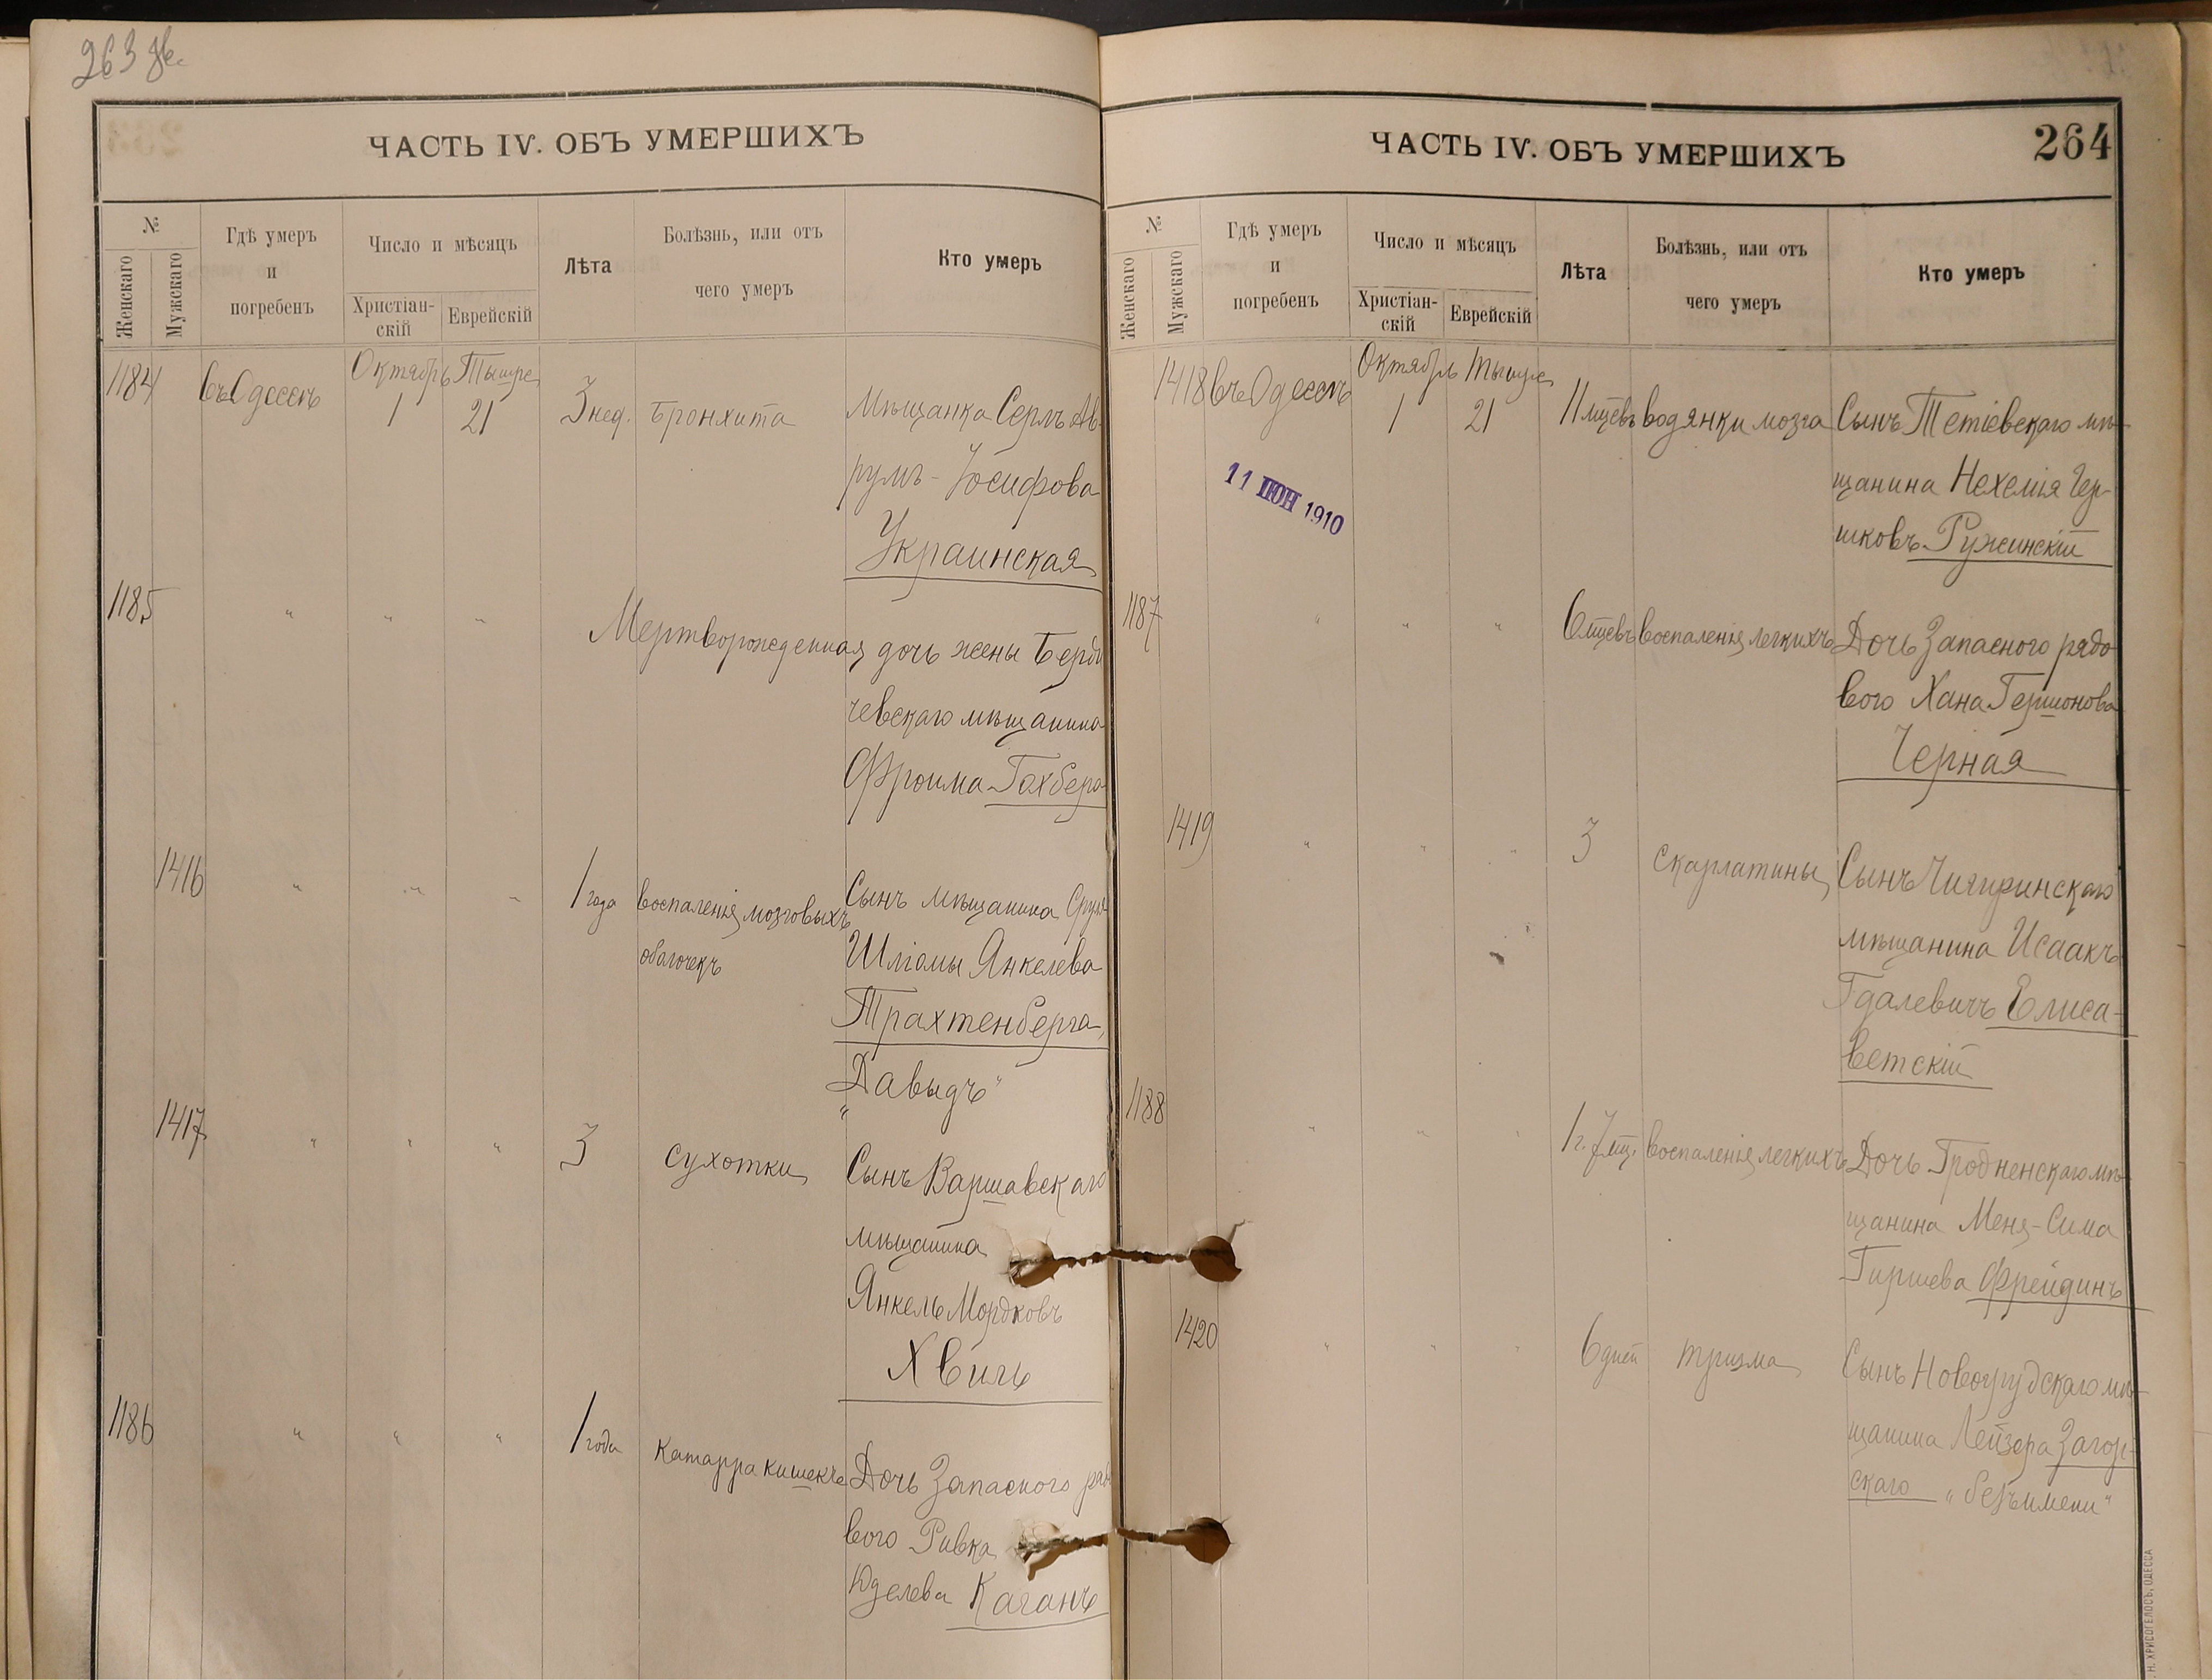 263 об.
ЧАСТЬ IV. ОБЪ УМЕРШИХЪ
№
Женскаго
Мужскаго
Гдѣ умеръ
и
погребенъ
Число и мѣсяцъ
Христіан-
скій
Еврейскій
Лѣта
Болѣзнь, или отъ
чего умеръ
Кто умеръ
1184
въ Одессѣ
Октябрь
1
Тышре
21
3 нед.
Бронхита
Мѣщанка Серлъ Ав-
румъ-Іосифова
Украинская
1185
" " "
Мертворожденная дочь жены Берди
чевскаго мѣщанина
Фроима Гохберга
1416
" " "
1 года
воспаленія мозговыхъ
оболочекъ
Сынъ мѣщанина Сруля
Шліомы Янкелева
Трахтенберга,
"Давыдъ"
1417
" " "
3
сухотки
Сынъ Варшавскаго
мѣщанина
Янкель Мордковъ
Хвиль
1186
" " "
1 года
Катарра кишекъ
Дочь Запасного рядо
вого Ривка
Юделева Каганъ
ЧАСТЬ IV. ОБЪ УМЕРШИХЪ
264
№
Женскаго
Мужскаго
Гдѣ умеръ
и
погребенъ
Число и мѣсяцъ
Христіан-
скій
Еврейскій
Лѣта
Болѣзнь, или отъ
чего умеръ
Кто умеръ
1418
въ Одессѣ
Октябрь
1
Тышре
21
11 мцевъ
водянки мозга
Сынъ Тетіевскаго мѣ-
щанина Нехемія Гер-
шковъ Ружинскій
11 ІЮН 1910
1187
" " "
6 мцевъ
воспаленія легкихъ
Дочь Запасного рядо
вого Хана Гершонова
Черная
1419
" " "
3
скарлатины
Сынъ Чигиринскаго
мѣщанина Исаакъ
Гдалевичъ Елиса-
ветскій
1188
" " "
1 г. 7 мц.
воспаленія легкихъ
Дочь Гродненскаго мѣ-
щанина Меня-Сима
Гиршева Фрейдинъ
1420
" " "
6 дней
тризма
Сынъ Новогрудскаго мѣ-
щанина Лейзера Загор-
скаго "безъ имени"
Н. ХРИСОГЕЛОСЪ, ОДЕССА